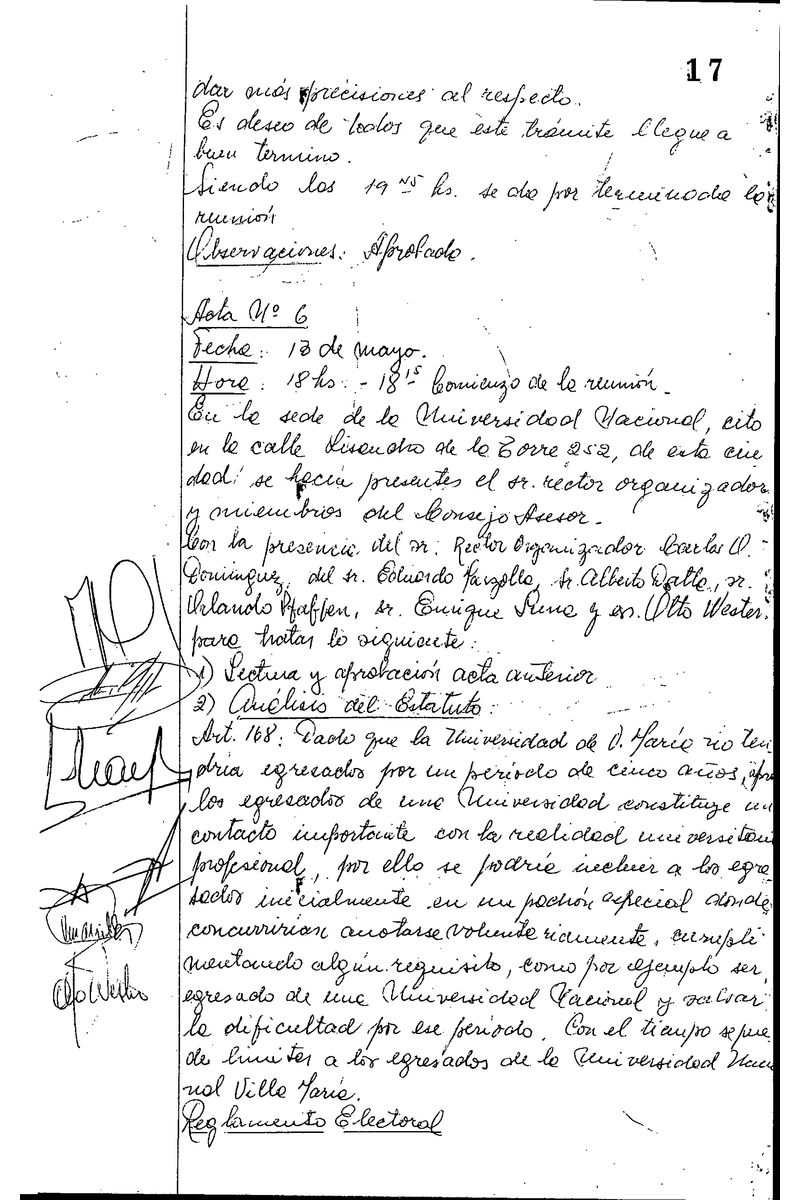 17
dar más precisiones al respecto.
Es deseo de todos que este trámite llegue a
buen termino.
Siendo las 19 hs. se da por terminada la
reunión
Observaciones: Aprobado.
Acta Nº 6
Fecha: 13 de mayo.
Hora: 18 hs. - 18 15 Comienzo de la reunión.
En la sede de la Universidad Nacional, cito
en la calle Lisandro de la Torre 252, de esta ciu
dad: se hacía presentes el sr. rector organizador
y miembros del Consejo Asesor.
Con la presencia del sr. Rector Organizador Carlos O.
Dominguez, del sr. Eduardo, sr. Alberto, sr.
Orlando Pfaffen, sr. Enrique y sr. Otto Wester.
para tratar lo siguiente:
1) Lectura y aprobación acta anterior
2) Análisis del Estatuto:
Art. 168: Dado que la Universidad de V. María no ten
dría egresados por un período de cinco años,
los egresados de una Universidad constituye un
contacto importante con la realidad
profesional, por ello se podría incluir a los egre
sados inicialmente en un padrón especial donde
concurrirían anotarse voluntariamente, cumpli
mentando algún requisito, como por ejemplo ser
egresado de una Universidad Nacional y salvar
la dificultad por ese período. Con el tiempo se pue
de limitar a los egresados de la Universidad Nacio
nal Villa María.
Reglamento Electoral
Otto Wester